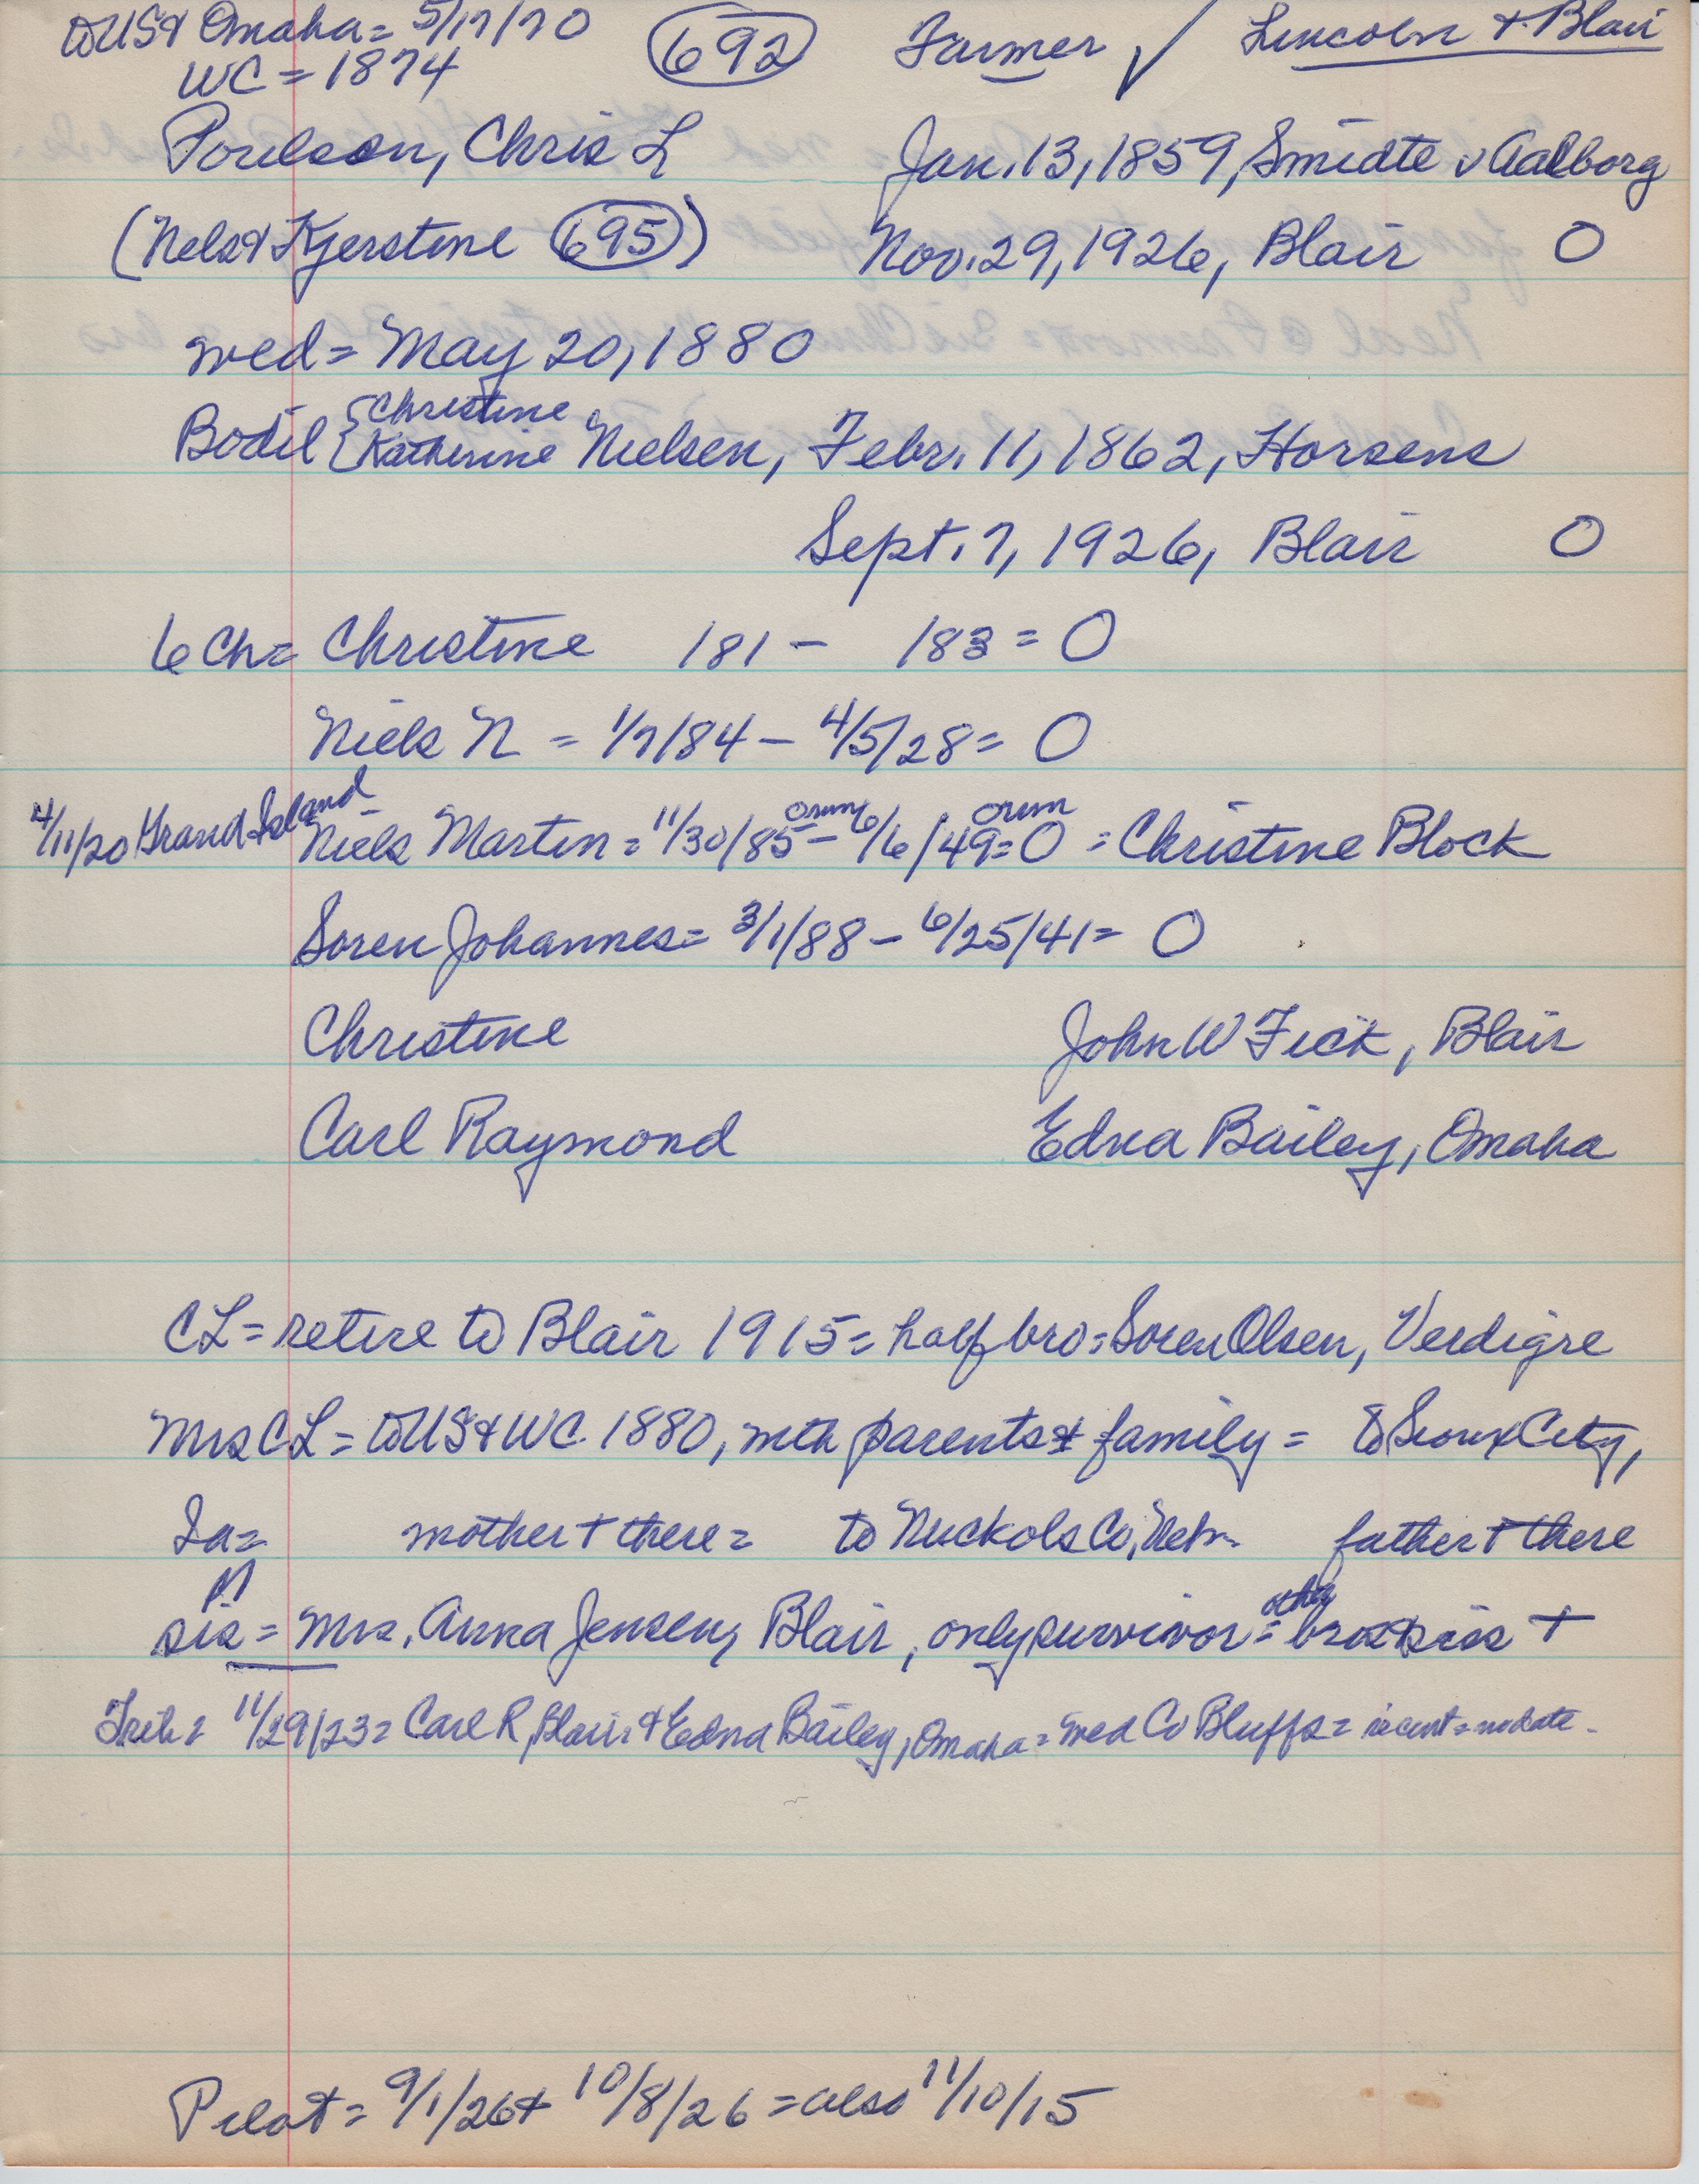 to US & Omaha = 5/17/70 (692) Farmer ✓ Lincoln + Blair
WC = 1874
Poulson, Chris L Jan. 13, 1859, Smidte v Aalborg
(Nels & Kjerstine (695)) Nov. 29, 1926, Blair O
wed = May 20, 1880
Bodil { Christine
Katherine Nielsen, Febr. 11, 1862, Horsens
Sept. 7, 1926, Blair O
6 Ch = Christine 181 - 183 = O
Niels N = 1/7/84 - 4/5/28 = O
4/11/20 Grand Island
Niels Martin = 11/30/85 Orum - 6/6/49 = O Orum = Christine Block
Soren Johannes = 3/1/88 - 6/25/41 = O
Christine John W Fick, Blair
Carl Raymond Edna Bailey, Omaha
CL = retire to Blair 1915 = half bro = Soren Olsen, Verdigre
Mrs CL = to US & WC 1880, with parents & family = to Sioux City,
Ia = mother + there = to Nuckols Co, Nebr. father + there
sis = Mrs. Anna Jensen, Blair, only survivor = other bros & sis +
Trib = 11/29/23 = Carl R, Blair & Edna Bailey, Omaha = wed Co Bluffs = recent = no date -
Pilot = 9/1/26 + 10/8/26 = also 11/10/15